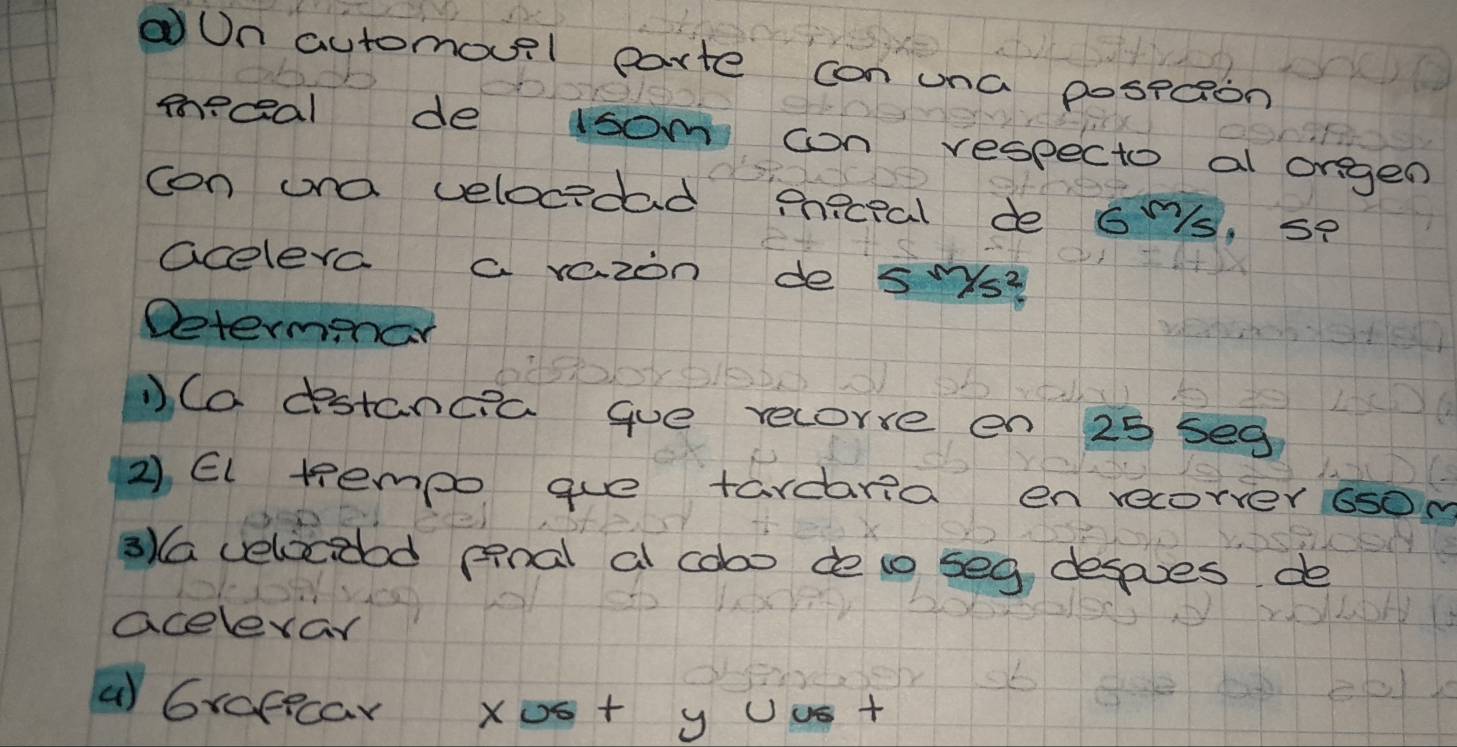 a) Un automovil parte con una posición
inicial de 150m con respecto al origen
con una velocidad inicial de 6 m/s, si
acelera a razón de 5 m/s².
Determinar
1) La distancia que recorre en 25 seg
2) El tiempo que tardaria en recorrer 650 m
3) La velocidad final al cabo de 10 seg despues de
acelerar
4) Graficar x vs t y v vs t